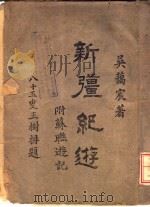 吴藹宸著
新疆紀遊
附蘇聯遊記
八十五叟王樹枏題